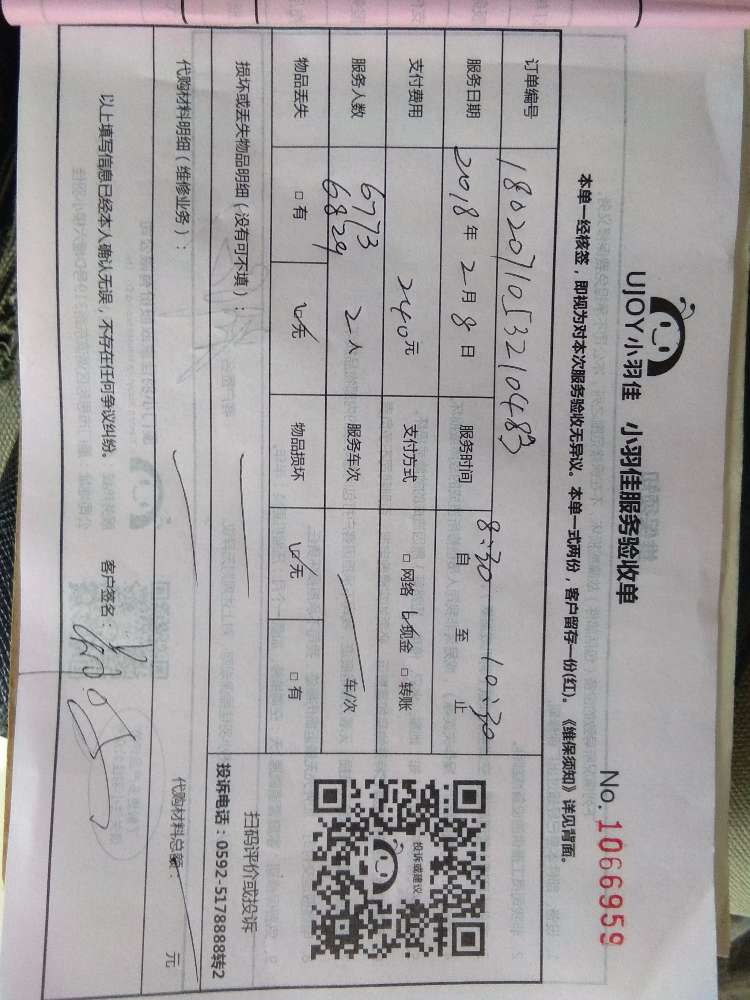 UJOY小羽佳 小羽佳服务验收单
No. 1066959
本单一经核签，即视为对本次服务验收无异议。本单一式两份，客户留存一份(红)。《维保须知》详见背面。
订单编号 1802071053210483
服务日期 2018年2月8日 服务时间 8:30 自 至 10:30 止
支付费用 240元 支付方式 □网络 ☑现金 □转账
服务人数 6773 6829 2人 服务车次 车/次
物品丢失 □有 ☑无 物品损坏 ☑无 □有
投诉或建议
扫码评价或投诉
投诉电话：0592-5178888转2
损坏或丢失物品明细(没有可不填)：
代购材料明细(维修业务)： 代购材料总额： 元
以上填写信息已经本人确认无误，不存在任何争议纠纷。 客户签名：